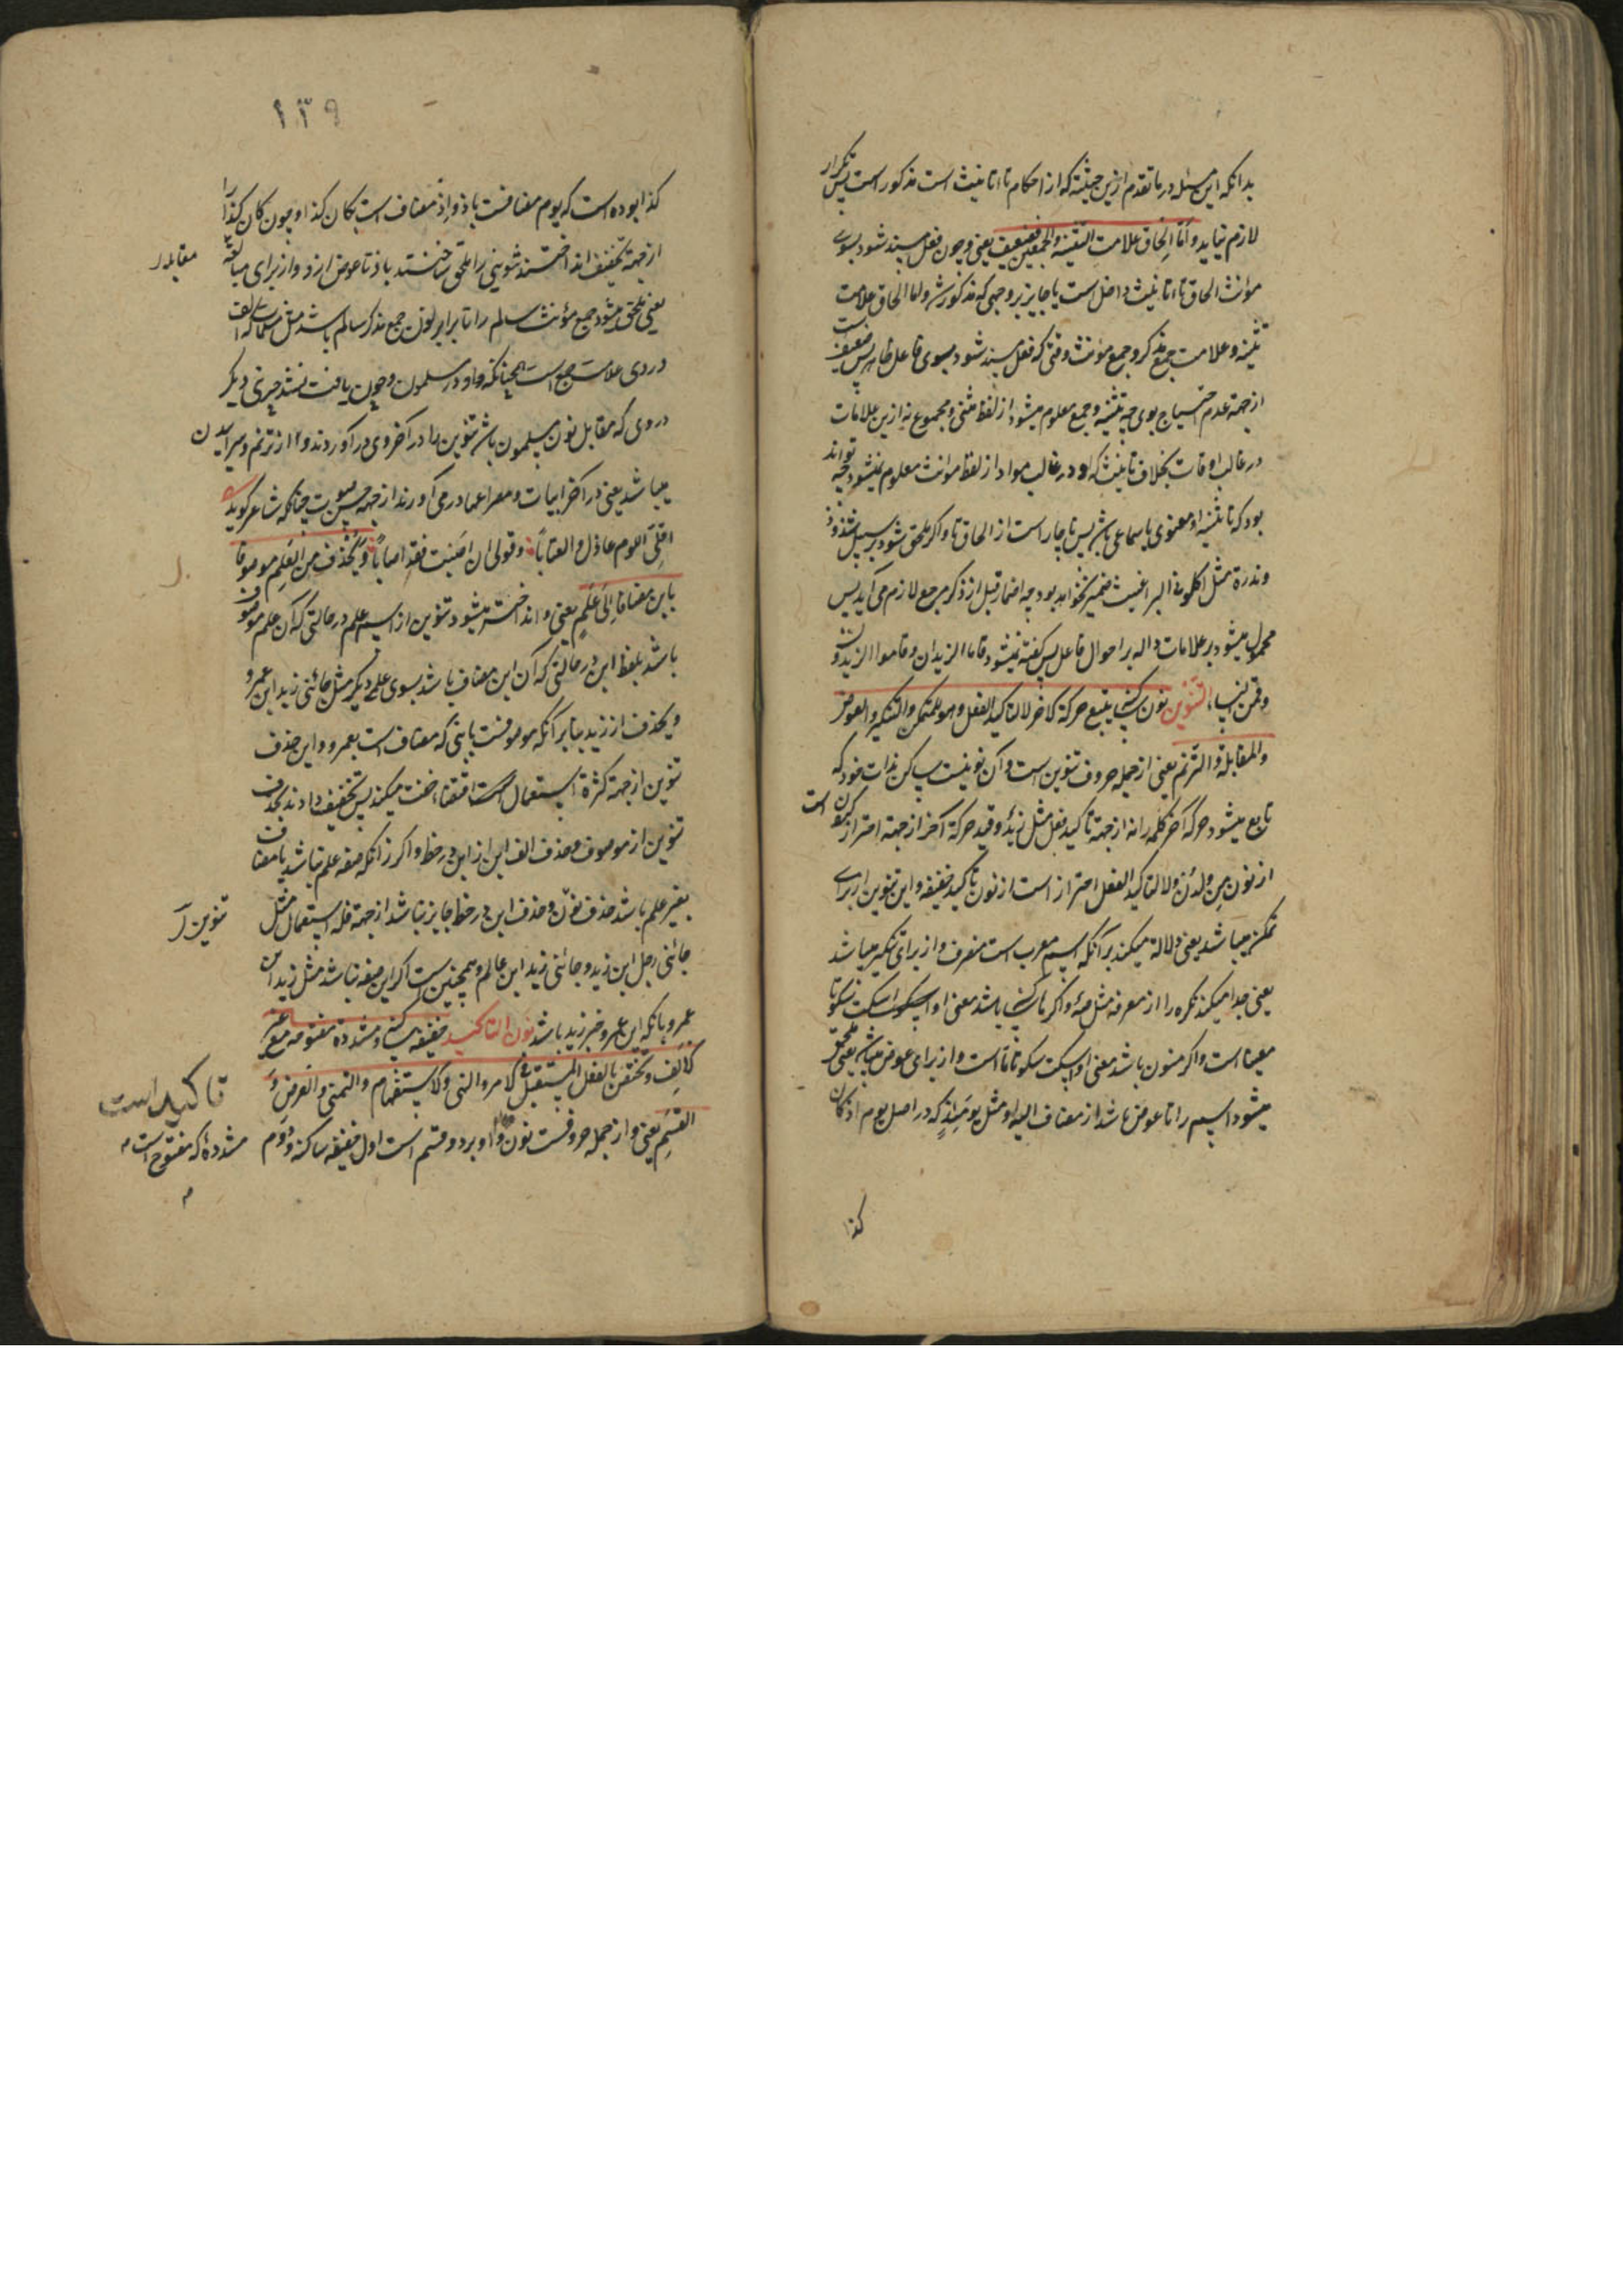 بدانکه این مسئله در ما تقدم ازین حیثیة که از احکام تاء تانیث است مذکور است پس تکرار
لازم نیاید و اَمّا اِلحاق علامت التثنیة والجمعین فضعیف یعنی و چون فعل مسند شود بسوی
مؤنث الحاق تاء تانیث داخل است یا جایز بر وجهی که مذکور شد و اما الحاق علامت
تثنیه و علامت جمع مذکر و جمع مؤنث وقتی که فعل مسند شود بسوی فاعل ظاهر پس ضعیف است
از جهة عدم احتیاج بوی چه تثنیه و جمع معلوم میشود از لفظ مثنی و مجموع نه ازین علامات
در غالب اوقات بخلاف تانیث که او در غالب مواد از لفظ مؤنث معلوم نمیشود چه تواند
بود که تانیث او معنوی یا سماعی باشد پس ناچار است از الحاق تا و اگر ملحق شود بر سبیل شذوذ
و ندرة مثل اکلونی البراغیث ضمیر نخواهد بود چه اضمار قبل از ذکر مرجع لازم می آید پس
محمول میشود بر علامات داله بر احوال فاعل پس گفته نمیشود قاما الزیدان و قاموا الزیدون
وقمن النساء التنوین نون ساکنة یتبع حرکة الاخر لا لتاکید الفعل وهو للتمکن والتنکیر والعوض
والمقابلة والترنم یعنی از جمله حروف تنوین است و آن نونیست ساکن بذات خود که
تابع میشود حرکة آخر کلمه را نه از جهة تاکید فعل مثل زیدٌ و قید حرکة آخر از جهة احتراز است
از نون مِن ولدُن ولا لتاکید الفعل احتراز است از نون تاکید خفیفه و این تنوین از برای
تمکن میباشد یعنی دلالة میکند بر آنکه اسم معرب است منصرف و از برای تنکیر میباشد
یعنی جدا میکند نکره را از معرفه مثل صهٍ و اگر ساکن باشد معنی او اسکت سکوتا
معینا است و اگر منون باشد معنی او اسکت سکوتا ما است و از برای عوض میباشد یعنی ملحق
میشود اسم را تا عوض باشد از مضاف الیه او مثل یومئذٍ که در اصل یوم اذ کان
کذا
۱۳۹
کذا بوده است که یوم مضافست باذ و اِذ مضاف است بکان کذا و چون کان کذا را
از جهة تخفیف انداختند تنوینی را ملحق ساختند باذ تا عوض ازو و از برای مقابله
مقابله
یعنی ملحق میشود جمع مؤنث سالم را تا برابر نون جمع مذکر سالم باشد مثل مسلمات که الف
در وی علامت جمع است همچنانکه واو در مسلمون و چون یافت نشد چیزی دیگر
در وی که مقابل نون مسلمون باشد تنوین را در آخر وی در آوردند و از ترنم و سراییدن
میباشد یعنی در آخر ابیات و مصراعها در می آورند از جهة حسن صوت چنانکه شاعر گوید
اقِلِّی اللوم عاذل والعتاباً وقولی ان اصَبت فقد اصاباً ویُحذف من العَلَمِ موصوفا
بابن مضافا اِلی عَلَمٍ یعنی و انداخته میشود تنوین از اسم علم در حالتی که آن علم موصوف
باشد بلفظ ابن در حالتی که آن ابن مضاف باشد بسوی علمی دیگر مثل جائنی زید ابن عمرو
و یحذف از زید بنابر آنکه موصوفست بابنی که مضاف است بعمرو و این حذف
تنوین از جهة کثرة استعمال است اقتضاء خفت میکند پس تخفیف دادند بحذف
تنوین از موصوف و حذف الف ابن از ابن در خط و اگر زانکه صفه علم نباشد یا مضاف
بغیر علم باشد حذف نون و حذف ابن در خط جایز نباشد از جهة قلة استعمال مثل
تنوین
جائنی رجل ابن زید و جائنی زید ابن عالم و همچنین است اگر ابن صفه نباشد مثل زید ابن
عمرو بانکه ابن عمرو خبر زید باشد نون التاکید خفیفة ساکنة ومشددة مفتوحة مع غیر
الالِف وتختص بالفعل المستقبل فی الامر والنهی والاستفهام والتمنی والعرض وَ
القَسَمِ یعنی و از جمله حروفست نون تاکید و او بر دو قسم است اول خفیفه ساکنه و دوم
تاکید است
مشدده که مفتوح است